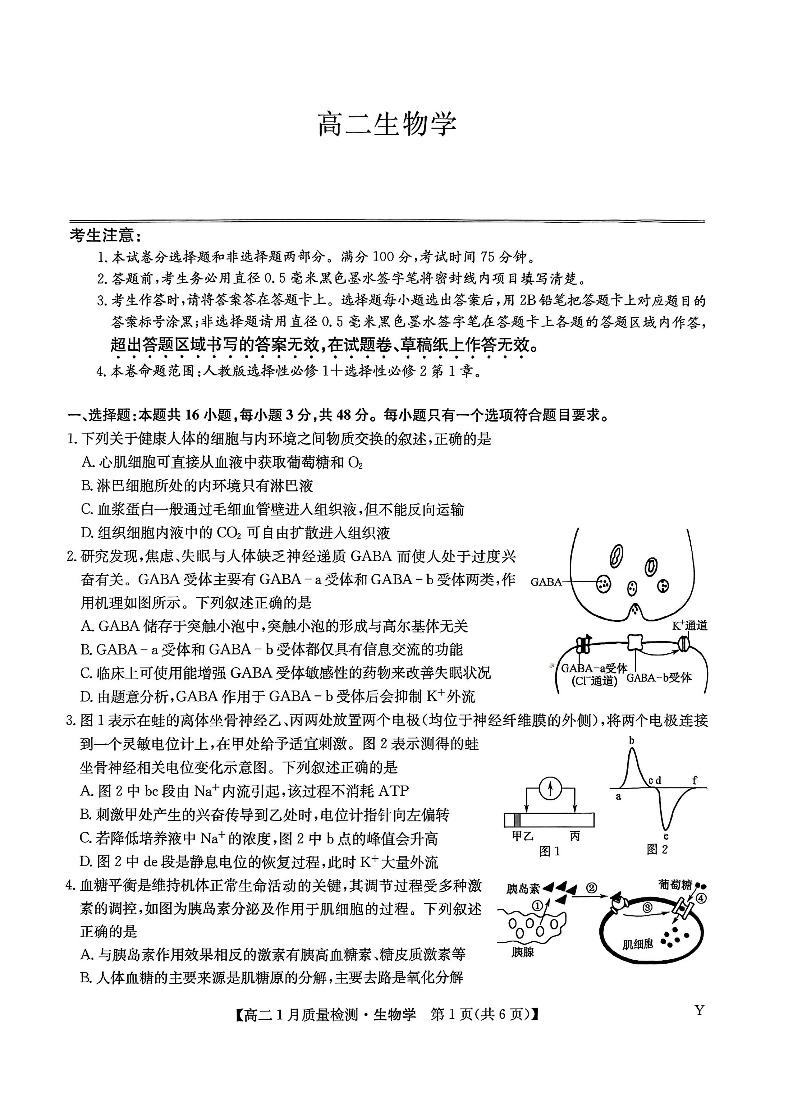 高二生物学
考生注意:
1.本试卷分选择题和非选择题两部分。满分100分,考试时间75分钟。
2.答题前,考生务必用直径0.5毫米黑色墨水签字笔将密封线内项目填写清楚。
3.考生作答时,请将答案答在答题卡上。选择题每小题选出答案后,用2B铅笔把答题卡上对应题目的
答案标号涂黑;非选择题请用直径0.5毫米黑色墨水签字笔在答题卡上各题的答题区域内作答,
超出答题区域书写的答案无效,在试题卷、草稿纸上作答无效。
4.本卷命题范围:人教版选择性必修1+选择性必修2第1章。
一、选择题:本题共16小题,每小题3分,共48分。每小题只有一个选项符合题目要求。
1.下列关于健康人体的细胞与内环境之间物质交换的叙述,正确的是
A.心肌细胞可直接从血液中获取葡萄糖和O₂
B.淋巴细胞所处的内环境只有淋巴液
C.血浆蛋白一般通过毛细血管壁进入组织液,但不能反向运输
D.组织细胞内液中的CO₂可自由扩散进入组织液
2.研究发现,焦虑、失眠与人体缺乏神经递质GABA而使人处于过度兴
奋有关。GABA受体主要有GABA-a受体和GABA-b受体两类,作
用机理如图所示。下列叙述正确的是
A.GABA储存于突触小泡中,突触小泡的形成与高尔基体无关
B.GABA-a受体和GABA-b受体都仅具有信息交流的功能
C.临床上可使用能增强GABA受体敏感性的药物来改善失眠状况
D.由题意分析,GABA作用于GABA-b受体后会抑制K⁺外流
GABA
K⁺通道
GABA-a受体
(Cl⁻通道)
GABA-b受体
3.图1表示在蛙的离体坐骨神经乙、丙两处放置两个电极(均位于神经纤维膜的外侧),将两个电极连接
到一个灵敏电位计上,在甲处给予适宜刺激。图2表示测得的蛙
坐骨神经相关电位变化示意图。下列叙述正确的是
A.图2中bc段由Na⁺内流引起,该过程不消耗ATP
B.刺激甲处产生的兴奋传导到乙处时,电位计指针向左偏转
C.若降低培养液中Na⁺的浓度,图2中b点的峰值会升高
D.图2中de段是静息电位的恢复过程,此时K⁺大量外流
甲乙 丙
图1
a b c d e f
图2
4.血糖平衡是维持机体正常生命活动的关键,其调节过程受多种激
素的调控,如图为胰岛素分泌及作用于肌细胞的过程。下列叙述
正确的是
A.与胰岛素作用效果相反的激素有胰高血糖素、糖皮质激素等
B.人体血糖的主要来源是肌糖原的分解,主要去路是氧化分解
胰岛素 ② 葡萄糖
① ③ ④
胰腺
肌细胞
【高二1月质量检测·生物学 第1页(共6页)】
Y